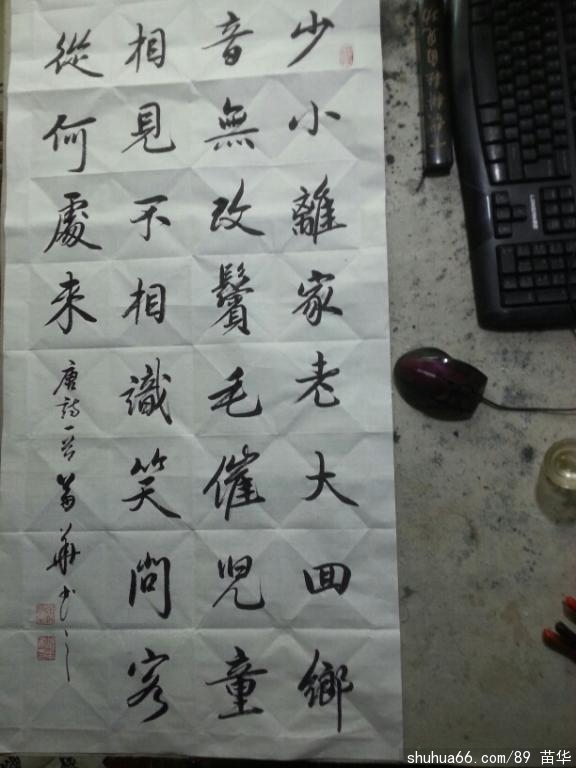 少小離家老大回鄉
音無改鬢毛催兒童
相見不相識笑問客
從何處来
唐詩一首苗華书之
shuhua66.com/89 苗华